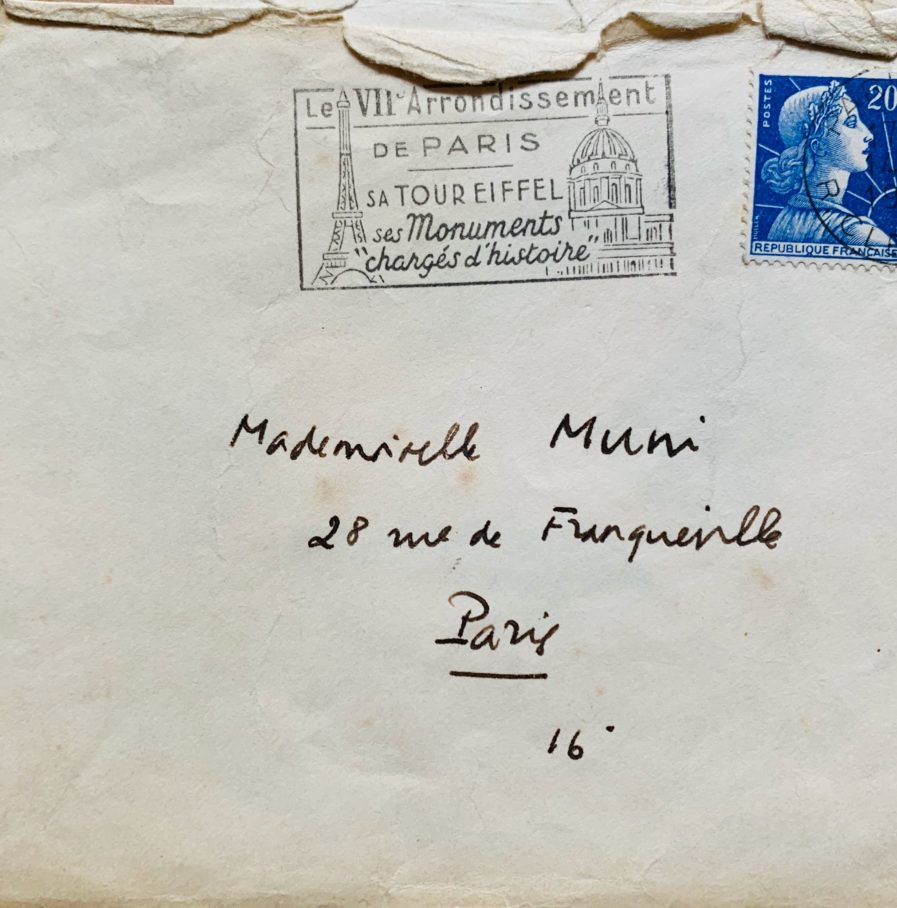 Le VIIe Arrondissement
DE PARIS
SA TOUR EIFFEL
ses Monuments
"chargés d'histoire"
POSTES
20
REPUBLIQUE FRANÇAISE
Mademoiselle Muni
28 rue de Franqueville
Paris
16e